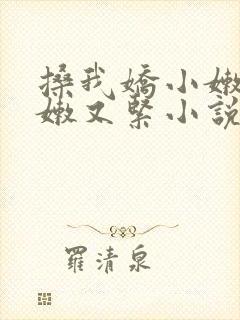 搡我嬌小嫩
嫩又緊小說
羅清泉